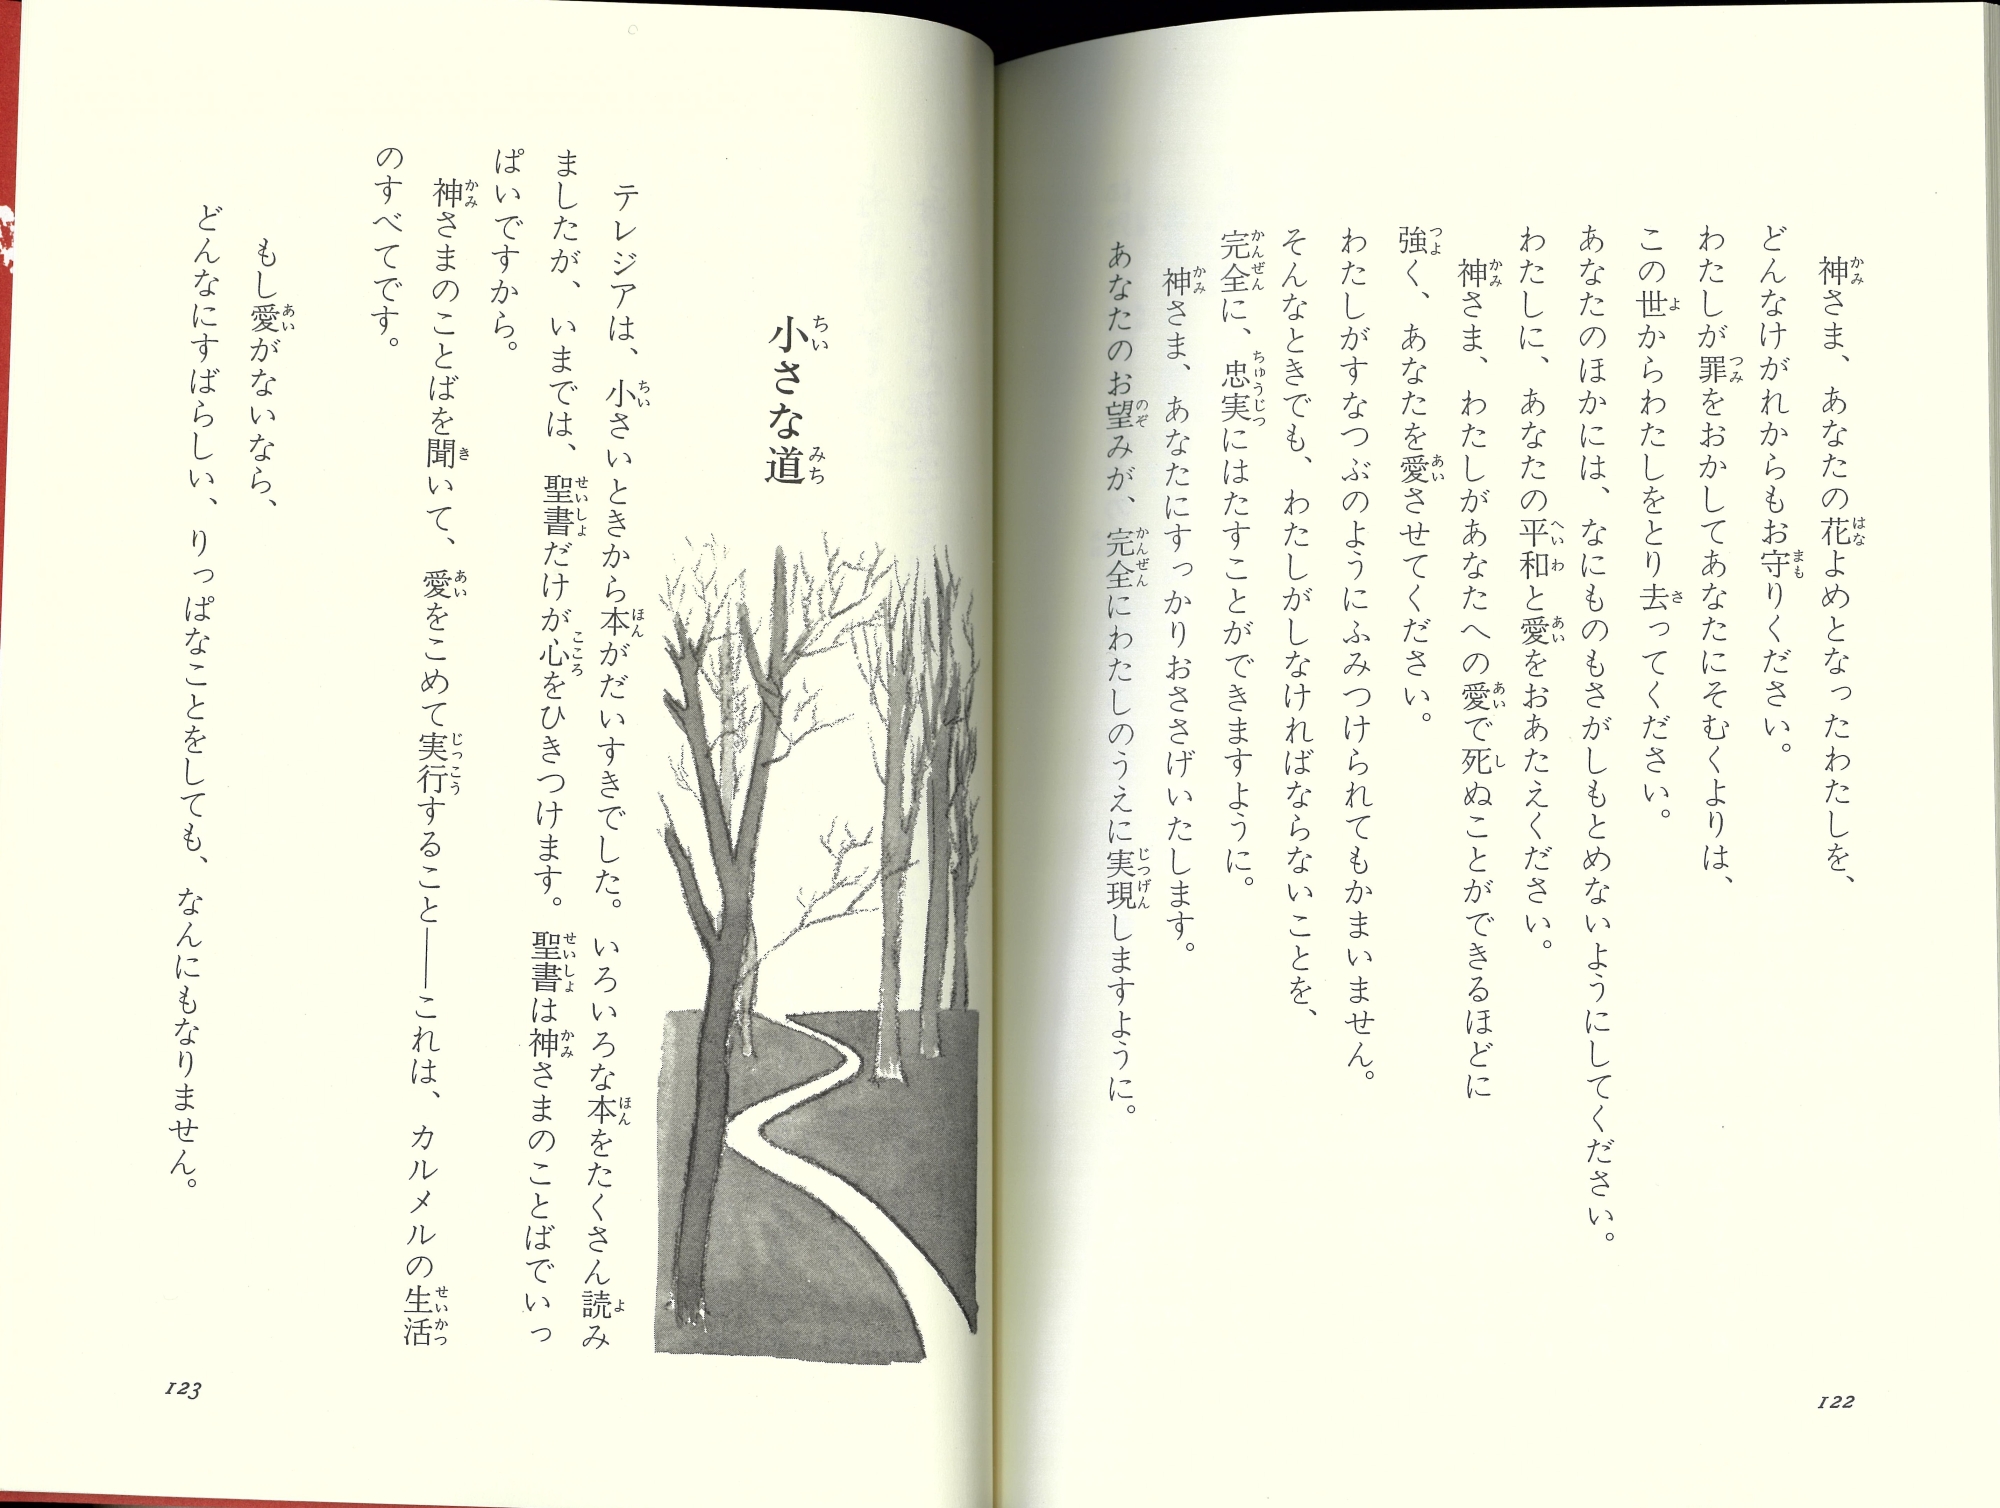 神さま、あなたの花よめとなったわたしを、
どんなけがれからもお守りください。
わたしが罪をおかしてあなたにそむくよりは、
この世からわたしをとり去ってください。
あなたのほかには、なにものもさがしもとめないようにしてください。
わたしに、あなたの平和と愛をおあたえください。
神さま、わたしがあなたへの愛で死ぬことができるほどに
強く、あなたを愛させてください。
わたしがすなつぶのようにふみつけられてもかまいません。
そんなときでも、わたしがしなければならないことを、
完全に、忠実にはたすことができますように。
神さま、あなたにすっかりおささげいたします。
あなたのお望みが、完全にわたしのうえに実現しますように。
122
小さな道
テレジアは、小さいときから本がだいすきでした。いろいろな本をたくさん読み
ましたが、いまでは、聖書だけが心をひきつけます。聖書は神さまのことばでいっ
ぱいですから。
神さまのことばを聞いて、愛をこめて実行すること――これは、カルメルの生活
のすべてです。
もし愛がないなら、
どんなにすばらしい、りっぱなことをしても、なんにもなりません。
123